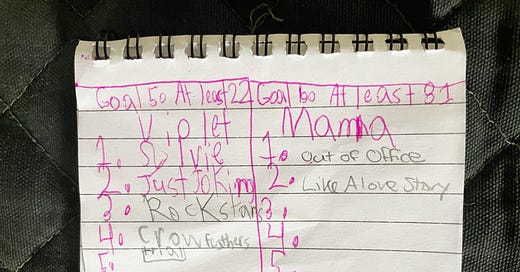 Goal 50 At least 22
Violet
1. Sylvie
2. Just Joking
3. Rockstars
4. Crow feathers
trial
5.
Goal 60 At least 31
Mama
1. Out of Office
2. Like A love Story
3.
4.
5.